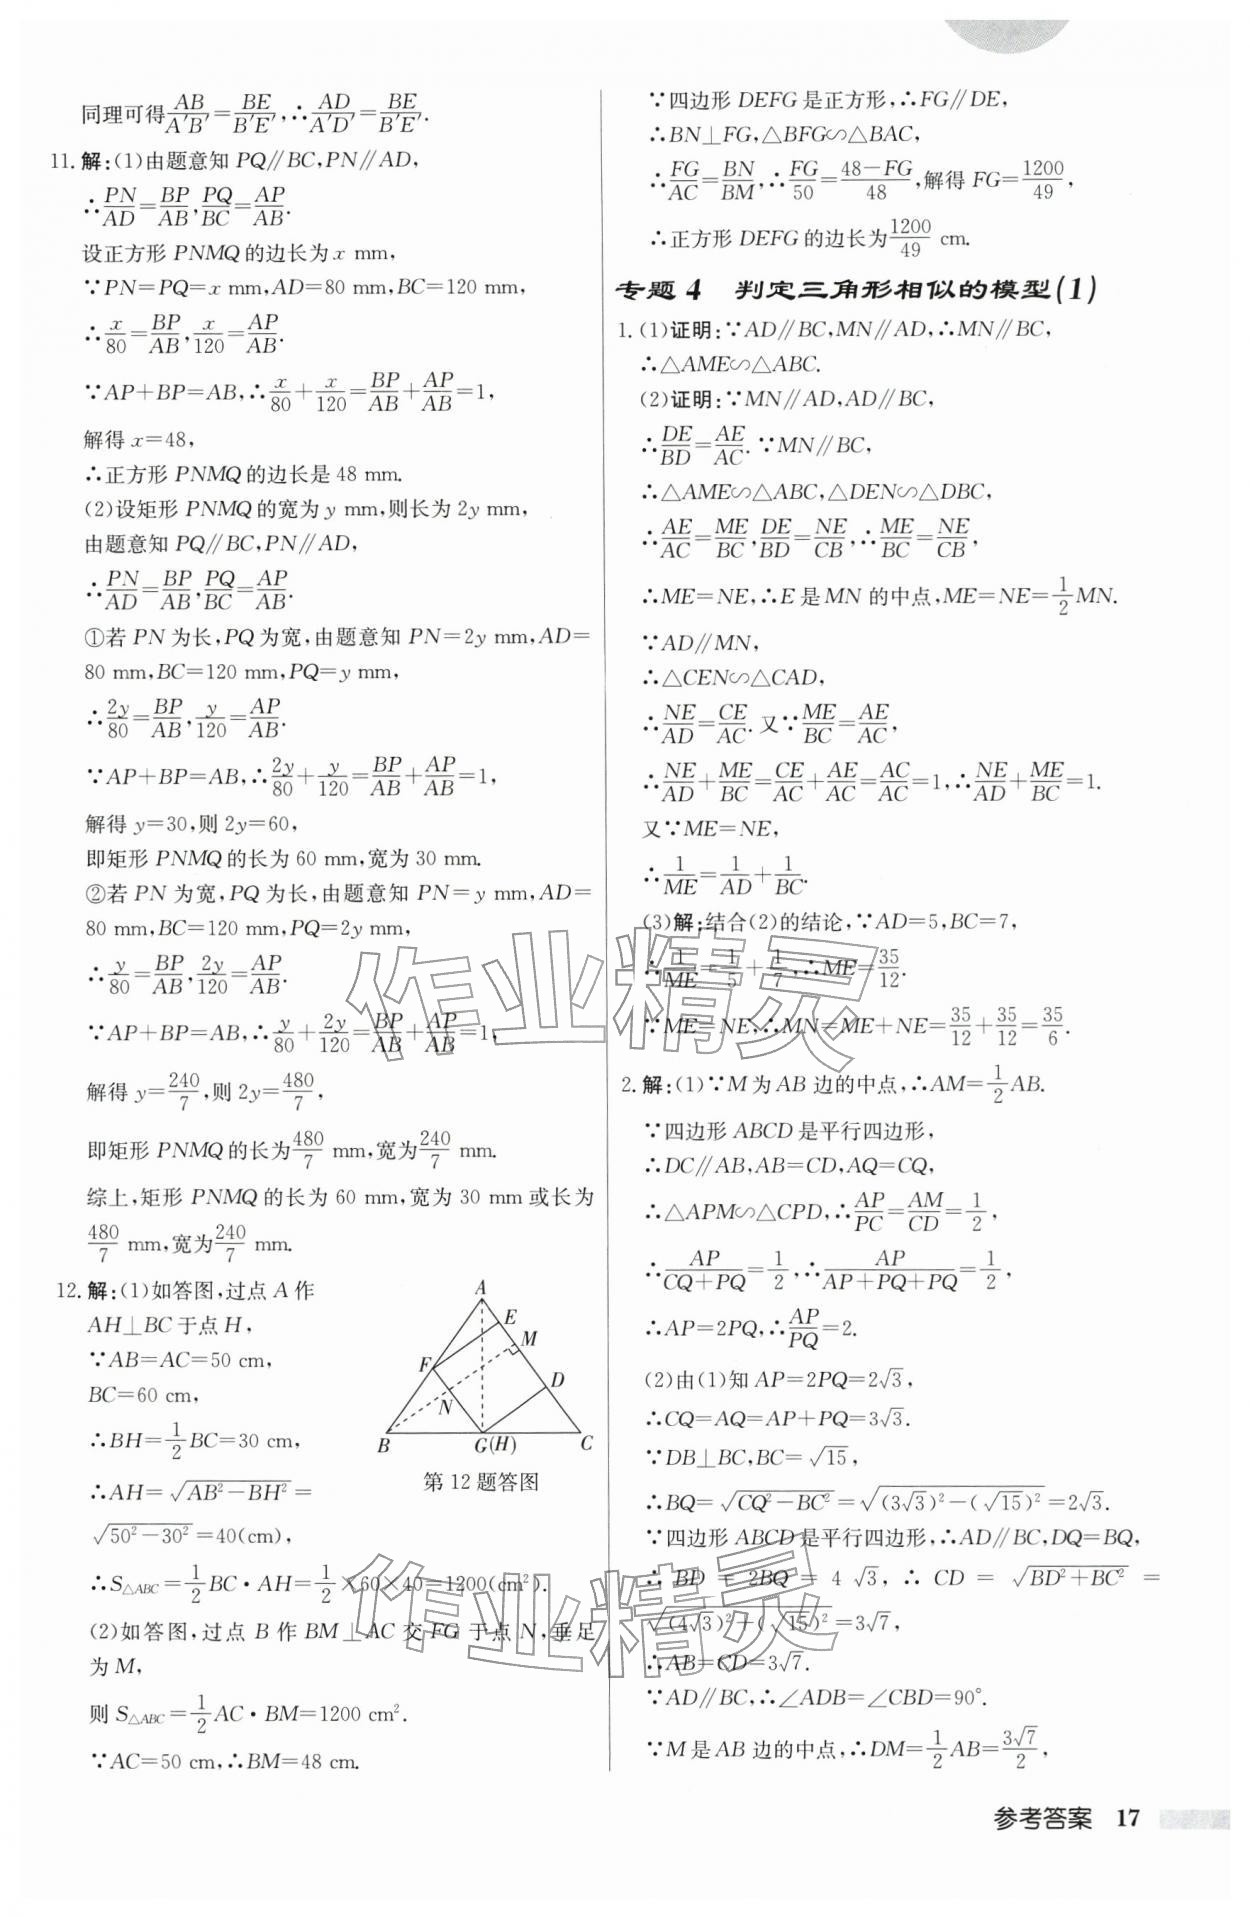 同理可得AB/A′B′=BE/B′E′,∴AD/A′D′=BE/B′E′.
11.解:(1)由题意知 PQ∥BC,PN∥AD,
∴PN/AD=BP/AB,PQ/BC=AP/AB.
设正方形 PNMQ 的边长为 x mm,
∵PN=PQ=x mm,AD=80 mm,BC=120 mm,
∴x/80=BP/AB,x/120=AP/AB.
∵AP+BP=AB,∴x/80+x/120=BP/AB+AP/AB=1,
解得 x=48,
∴正方形 PNMQ 的边长是 48 mm.
(2)设矩形 PNMQ 的宽为 y mm,则长为 2y mm,
由题意知 PQ∥BC,PN∥AD,
∴PN/AD=BP/AB,PQ/BC=AP/AB.
①若 PN 为长,PQ 为宽,由题意知 PN=2y mm,AD=
80 mm,BC=120 mm,PQ=y mm,
∴2y/80=BP/AB,y/120=AP/AB.
∵AP+BP=AB,∴2y/80+y/120=BP/AB+AP/AB=1,
解得 y=30,则 2y=60,
即矩形 PNMQ 的长为 60 mm,宽为 30 mm.
②若 PN 为宽,PQ 为长,由题意知 PN=y mm,AD=
80 mm,BC=120 mm,PQ=2y mm,
∴y/80=BP/AB,2y/120=AP/AB.
∵AP+BP=AB,∴y/80+2y/120=BP/AB+AP/AB=1,
解得 y=240/7,则 2y=480/7,
即矩形 PNMQ 的长为480/7 mm,宽为240/7 mm.
综上,矩形 PNMQ 的长为 60 mm,宽为 30 mm 或长为
480/7 mm,宽为240/7 mm.
12.解:(1)如答图,过点 A 作
AH⊥BC 于点 H,
∵AB=AC=50 cm,
BC=60 cm,
∴BH=1/2BC=30 cm,
∴AH=√(AB²−BH²)=
√(50²−30²)=40(cm),
A
E
M
F
D
N
B
G(H)
C
第 12 题答图
∴S△ABC=1/2BC·AH=1/2×60×40=1200(cm²).
(2)如答图,过点 B 作 BM⊥AC 交 FG 于点 N,垂足
为 M,
则 S△ABC=1/2AC·BM=1200 cm².
∵AC=50 cm,∴BM=48 cm.
∵四边形 DEFG 是正方形,∴FG∥DE,
∴BN⊥FG,△BFG∽△BAC,
∴FG/AC=BN/BM,∴FG/50=(48−FG)/48,解得 FG=1200/49,
∴正方形 DEFG 的边长为1200/49 cm.
专题 4 判定三角形相似的模型(1)
1.(1)证明:∵AD∥BC,MN∥AD,∴MN∥BC,
∴△AME∽△ABC.
(2)证明:∵MN∥AD,AD∥BC,
∴DE/BD=AE/AC.∵MN∥BC,
∴△AME∽△ABC,△DEN∽△DBC,
∴AE/AC=ME/BC,DE/BD=NE/CB,∴ME/BC=NE/CB,
∴ME=NE,∴E 是 MN 的中点,ME=NE=1/2MN.
∵AD∥MN,
∴△CEN∽△CAD,
∴NE/AD=CE/AC.又∵ME/BC=AE/AC,
∴NE/AD+ME/BC=CE/AC+AE/AC=AC/AC=1,∴NE/AD+ME/BC=1.
又∵ME=NE,
∴1/ME=1/AD+1/BC.
(3)解:结合(2)的结论,∵AD=5,BC=7,
∴1/ME=1/5+1/7,∴ME=35/12.
∵ME=NE,∴MN=ME+NE=35/12+35/12=35/6.
2.解:(1)∵M 为 AB 边的中点,∴AM=1/2AB.
∵四边形 ABCD 是平行四边形,
∴DC∥AB,AB=CD,AQ=CQ,
∴△APM∽△CPD,∴AP/PC=AM/CD=1/2,
∴AP/(CQ+PQ)=1/2,∴AP/(AP+PQ+PQ)=1/2,
∴AP=2PQ,∴AP/PQ=2.
(2)由(1)知 AP=2PQ=2√3,
∴CQ=AQ=AP+PQ=3√3.
∵DB⊥BC,BC=√15,
∴BQ=√(CQ²−BC²)=√((3√3)²−(√15)²)=2√3.
∵四边形 ABCD 是平行四边形,∴AD∥BC,DQ=BQ,
∴BD=2BQ=4√3,∴CD=√(BD²+BC²)=
√((4√3)²+(√15)²)=3√7,
∴AB=CD=3√7.
∵AD∥BC,∴∠ADB=∠CBD=90°.
∵M 是 AB 边的中点,∴DM=1/2AB=3√7/2,
参考答案 17
作业精灵
作业精灵